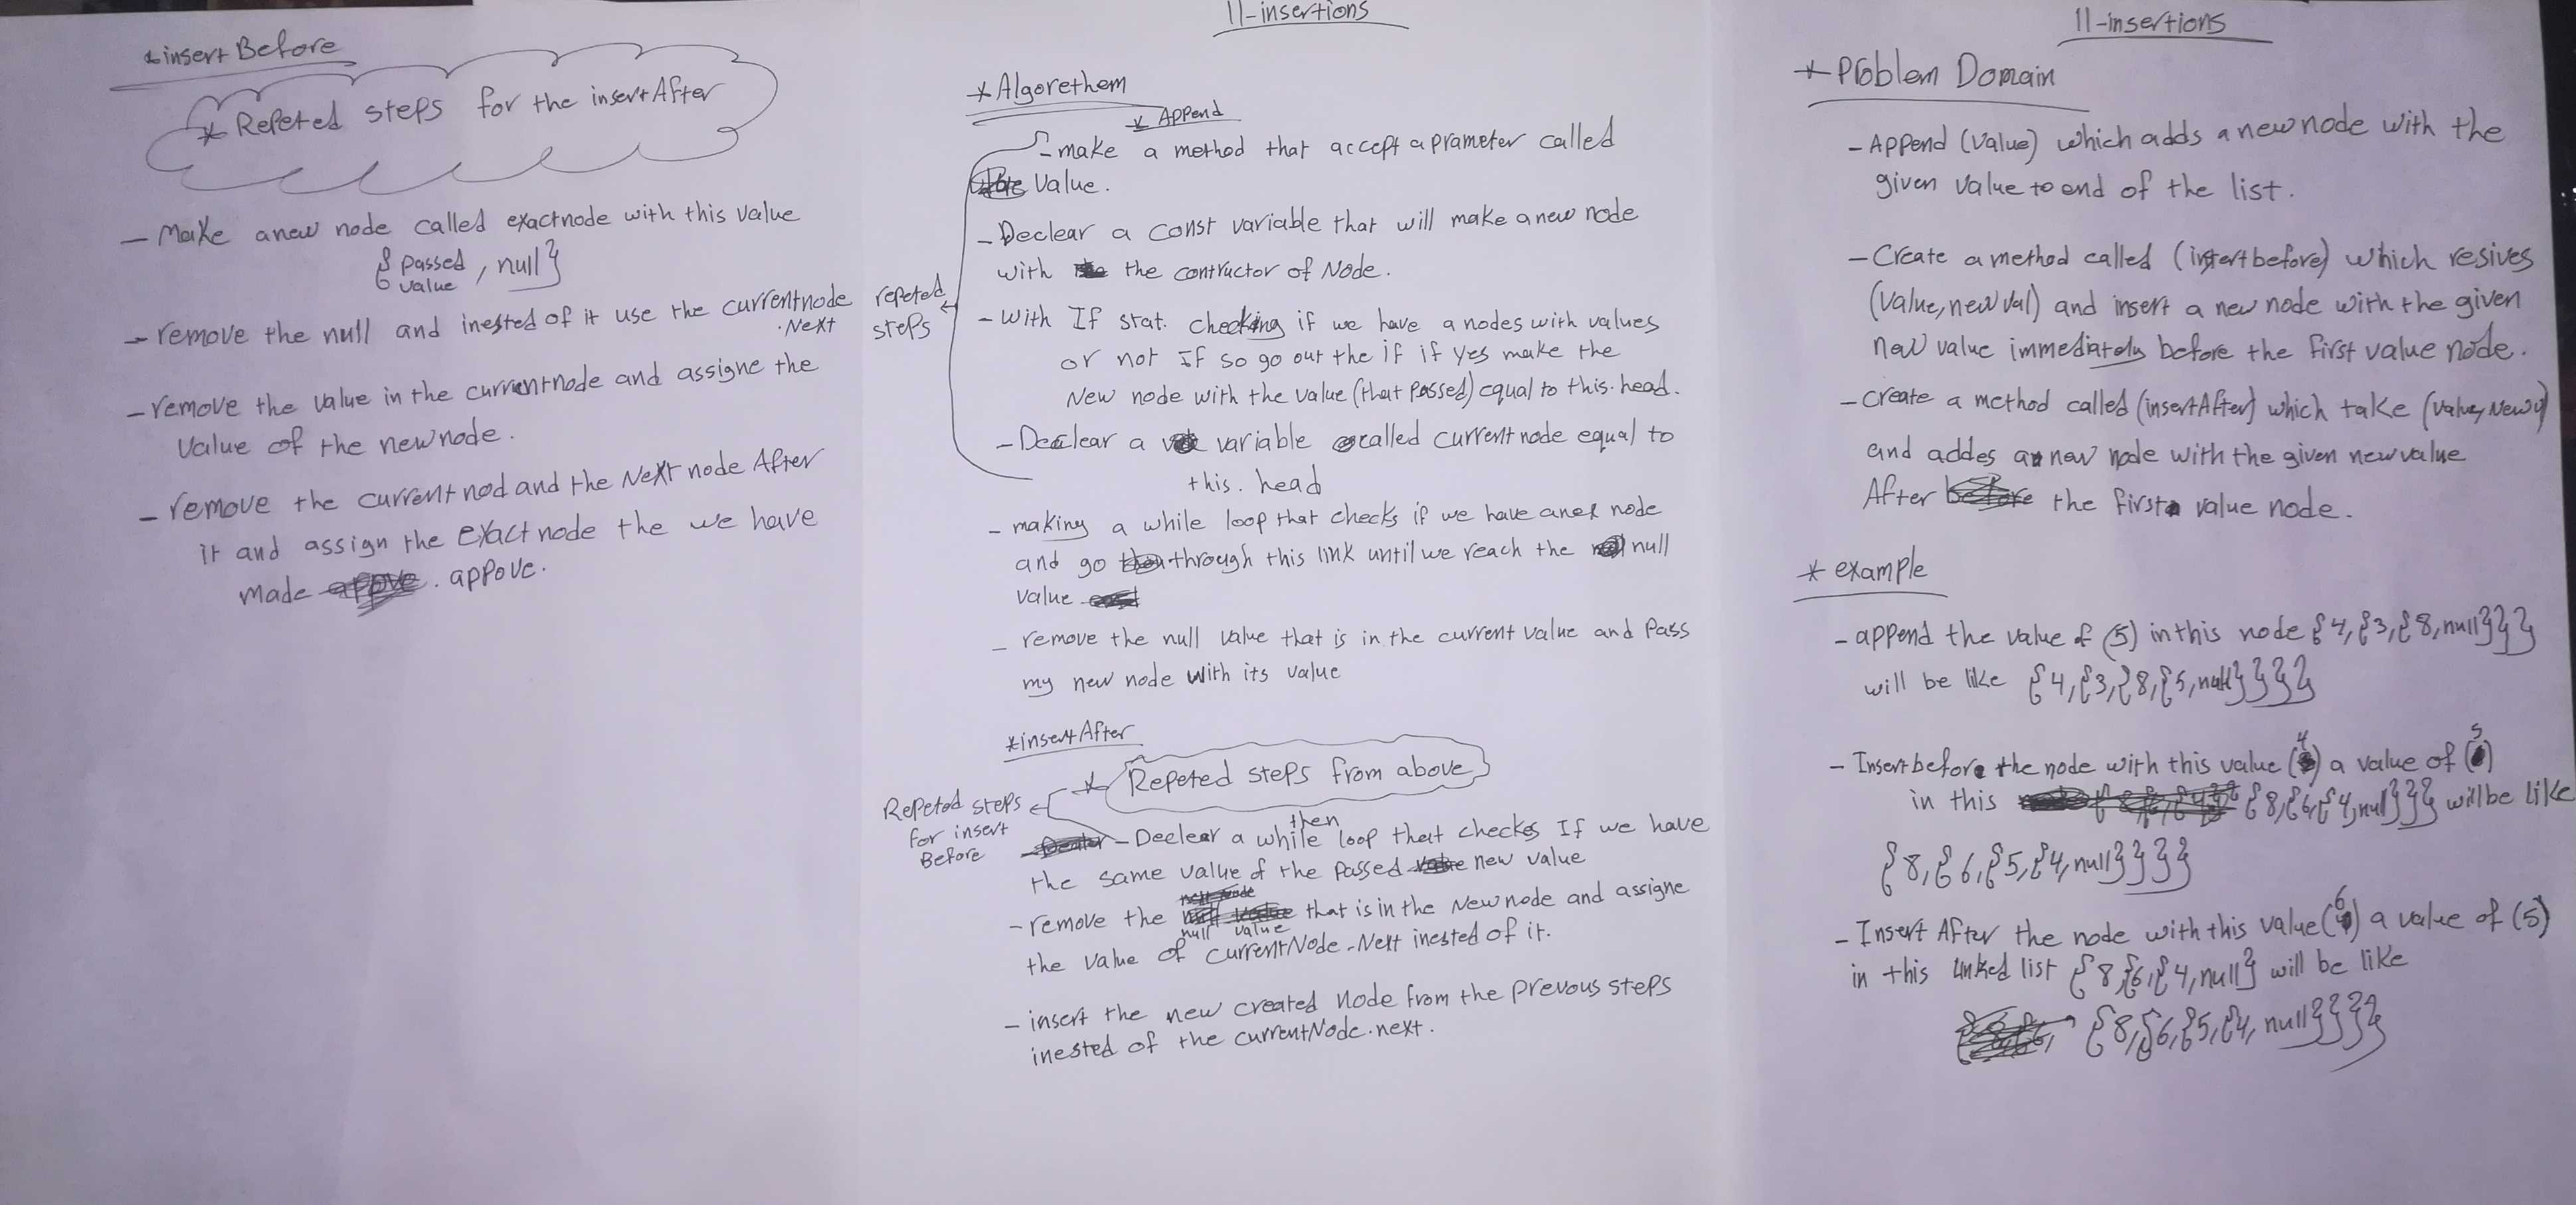 *insertBefore
* Repeted steps for the insertAfter
- Make a new node called exactnode with this value
{ passed value, null }
- remove the null and inested of it use the currentnode
.Next
- remove the value in the currentnode and assigne the
value of the newnode.
- remove the current nod and the Next node After
it and assign the exact node the we have
made appove.
ll-insertions
* Algorethem
* Append
- make a method that accept a prameter called
value.
- Declear a const variable that will make a new node
with the contructor of Node.
repeted
steps
- with If stat. checking if we have a nodes with values
or not If so go out the if if yes make the
New node with the value (that passed) equal to this.head.
- Declear a variable called current node equal to
this. head
- making a while loop that checks if we have a next node
and go through this link until we reach the null
value
- remove the null value that is in the current value and pass
my new node with its value
*insertAfter
* Repeted steps from above
Repeted steps
for insert
Before
then
- Declear a while loop that checkes If we have
the same value of the passed new value
- remove the null value that is in the New node and assigne
the value of currentNode.Next inested of it.
- insert the new created Node from the prevous steps
inested of the currentNode.next.
ll-insertions
* Problem Domain
- Append (value) which adds a new node with the
given value to end of the list.
- Create a method called (insertbefore) which resives
(value, new val) and insert a new node with the given
new value immediatoly before the first value node.
- create a method called (insertAfter) which take (value, Newv)
and addes a new node with the given new value
After the first value node.
* example
- append the value of (5) in this node {4,{3,{8,null}}}
will be like {4,{3,{8,{5,null}}}}
- Insert before the node with this value (4) a value of (5)
in this {8,{6,{4,null}}} will be like
{8,{6,{5,{4,null}}}}
- Insert After the node with this value (6) a value of (5)
in this linked list {8,{6,{4,null} will be like
{8,{6,{5,{4, null}}}}